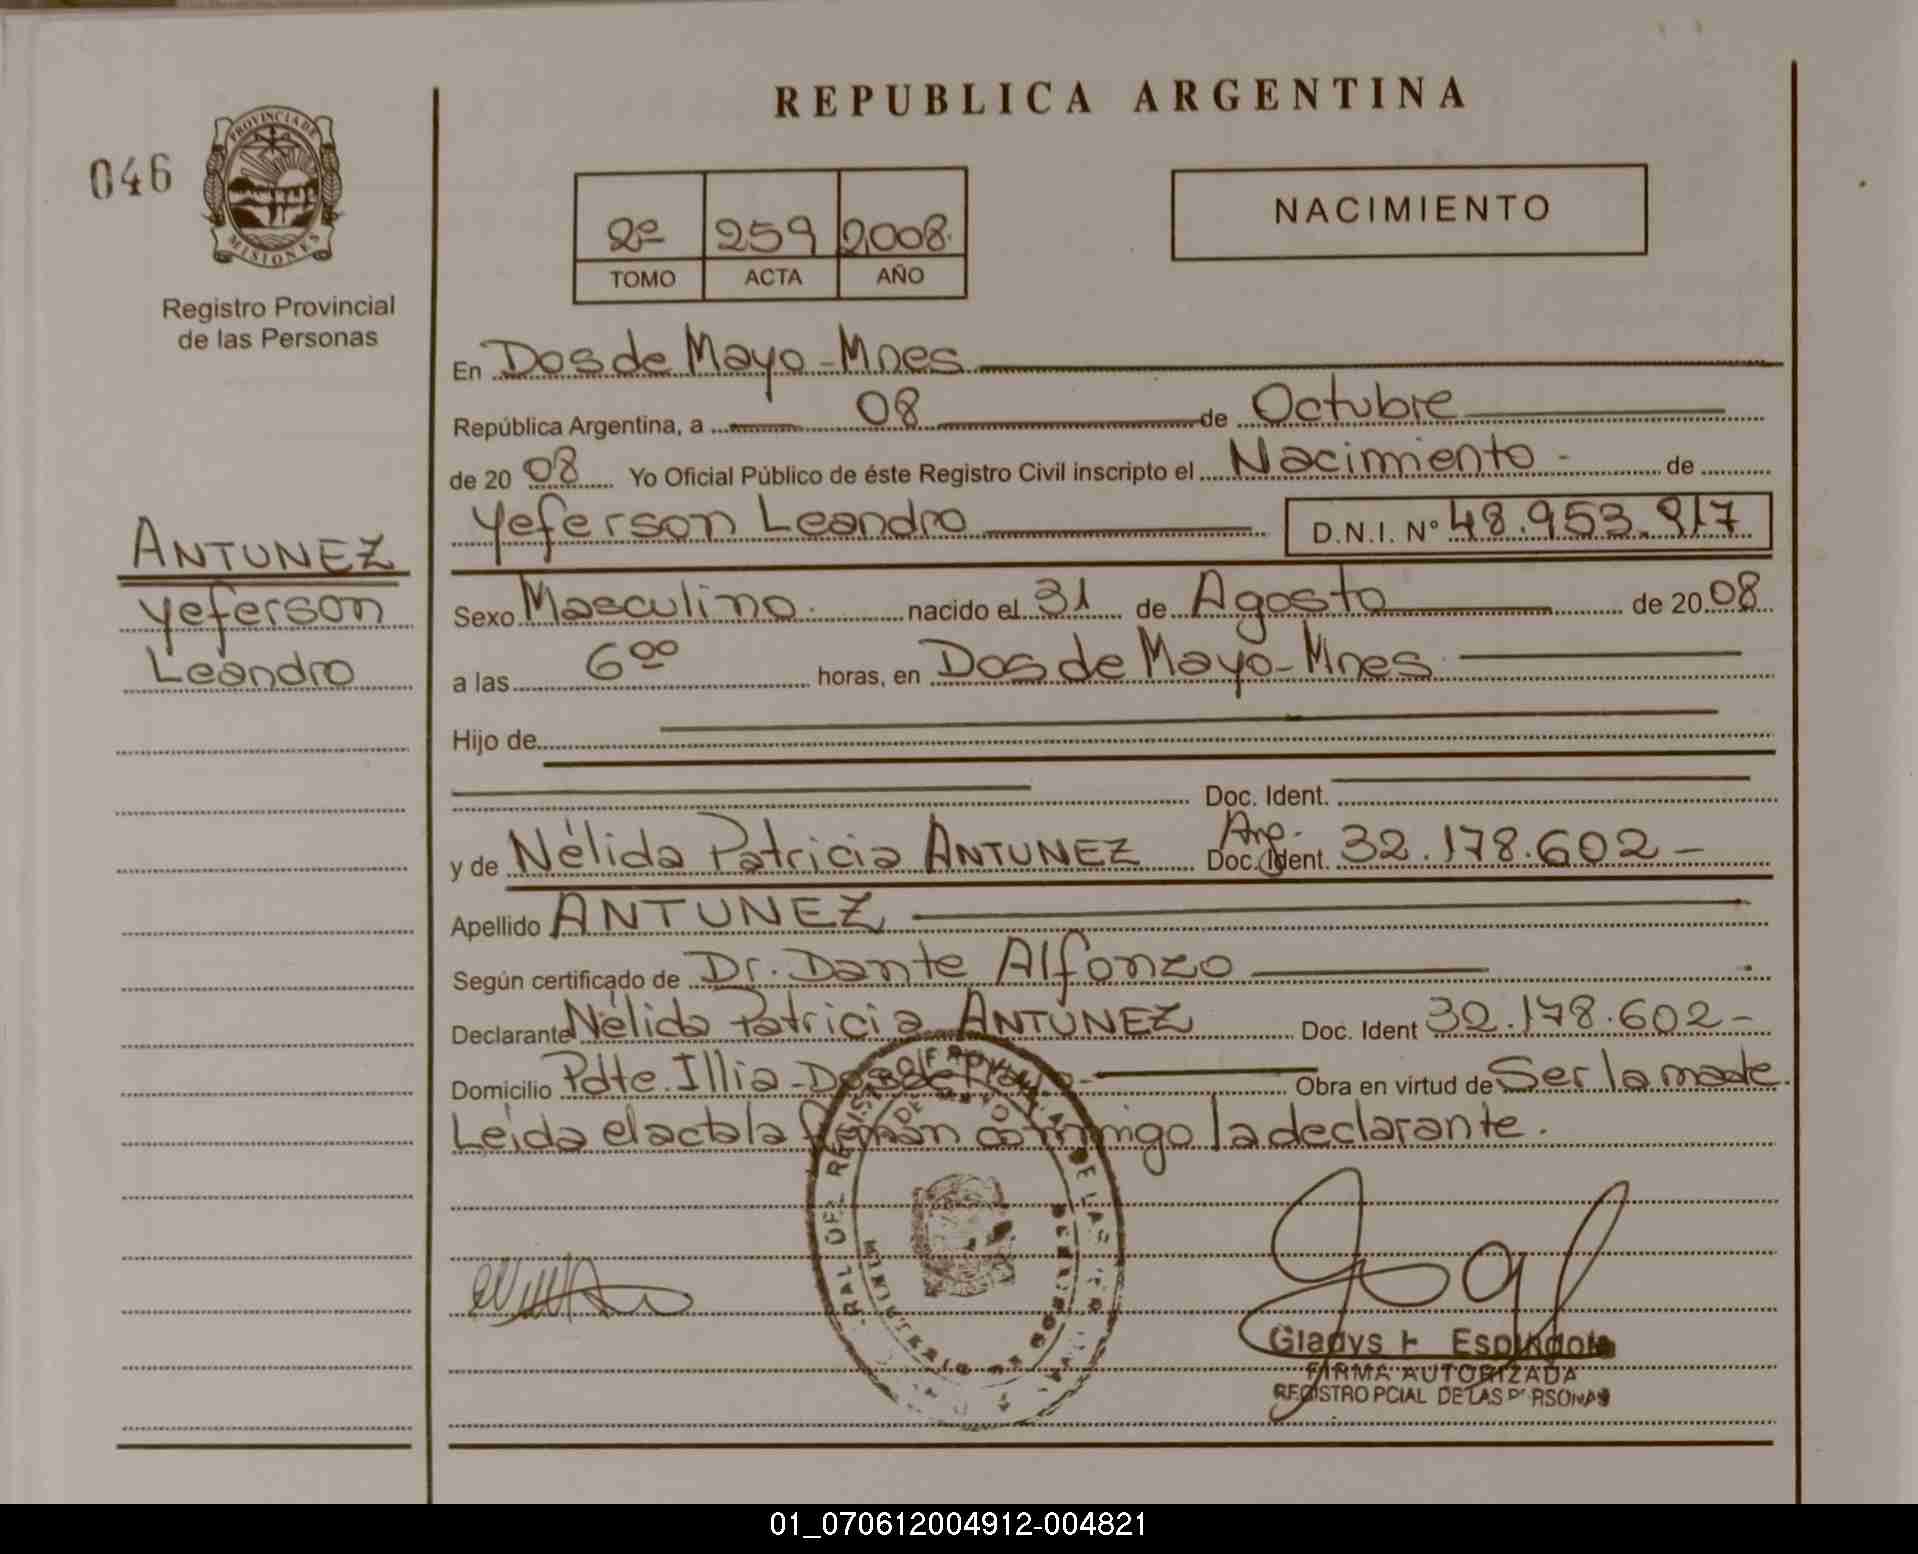 REPUBLICA ARGENTINA
046
PROVINCIA DE
MISIONES
Registro Provincial
de las Personas
2º 259 2008.
TOMO ACTA AÑO
NACIMIENTO
En Dos de Mayo - Mnes
República Argentina, a 08 de Octubre
de 20 08 Yo Oficial Público de éste Registro Civil inscripto el Nacimiento - de
Yeferson Leandro D.N.I. Nº 48.953.917
ANTUNEZ
Yeferson
Leandro
Sexo Masculino. nacido el 31 de Agosto de 20 08
a las 6 00 horas, en Dos de Mayo - Mnes
Hijo de
Doc. Ident.
y de Nélida Patricia ANTUNEZ Arg. Doc. Ident. 32.178.602 -
Apellido ANTUNEZ
Según certificado de Dr. Dante Alfonzo
Declarante Nélida Patricia ANTUNEZ Doc. Ident 32.178.602 -
Domicilio Pdte. Illia - Dos de Mayo - Obra en virtud de Ser la madre.
Leida el acta la firman conmigo la declarante.
Gladys Espindola
FIRMA AUTORIZADA
REGISTRO PCIAL DE LAS PERSONAS
01_070612004912-004821